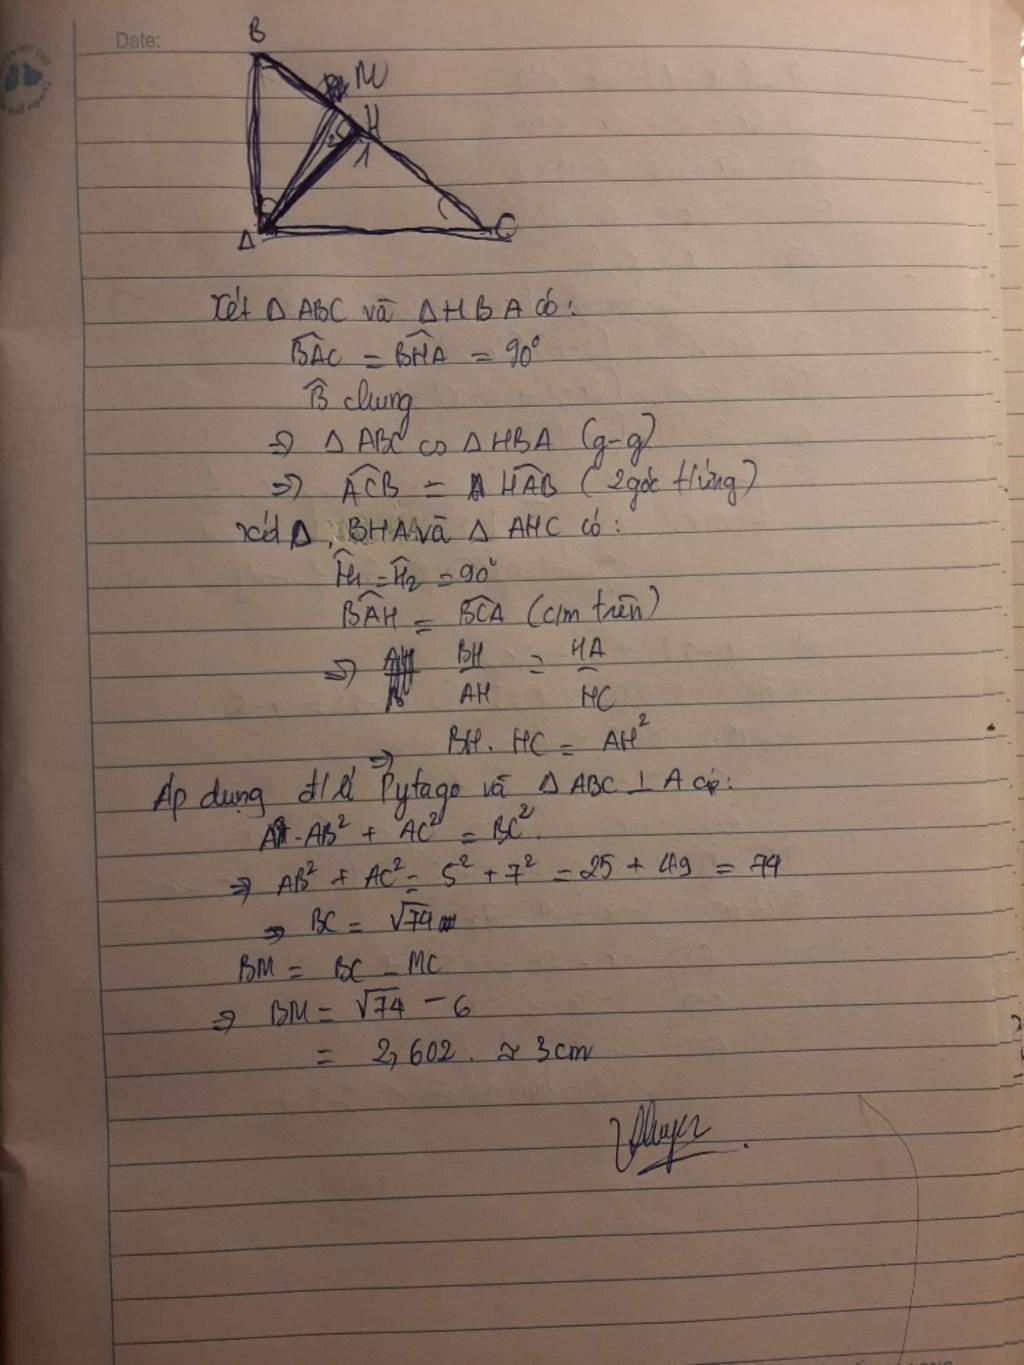 Date:
B
M
H
1
2
A
C
Xét Δ ABC và Δ HBA có:
BAC = BHA = 90°
B chung
=> Δ ABC ∽ Δ HBA (g-g)
=> ACB = HAB (2 góc t/ứng)
Xét Δ BHA và Δ AHC có:
H1 = H2 = 90°
BAH = BCA (c/m trên)
=> BH/AH = HA/HC
=> BH. HC = AH²
Áp dụng đ/lí Pytago và Δ ABC ⊥ A có:
AB² + AC² = BC².
=> AB² + AC² = 5² + 7² = 25 + 49 = 74
=> BC = √74
BM = BC - MC
=> BM = √74 - 6
= 2,602. ≈ 3cm